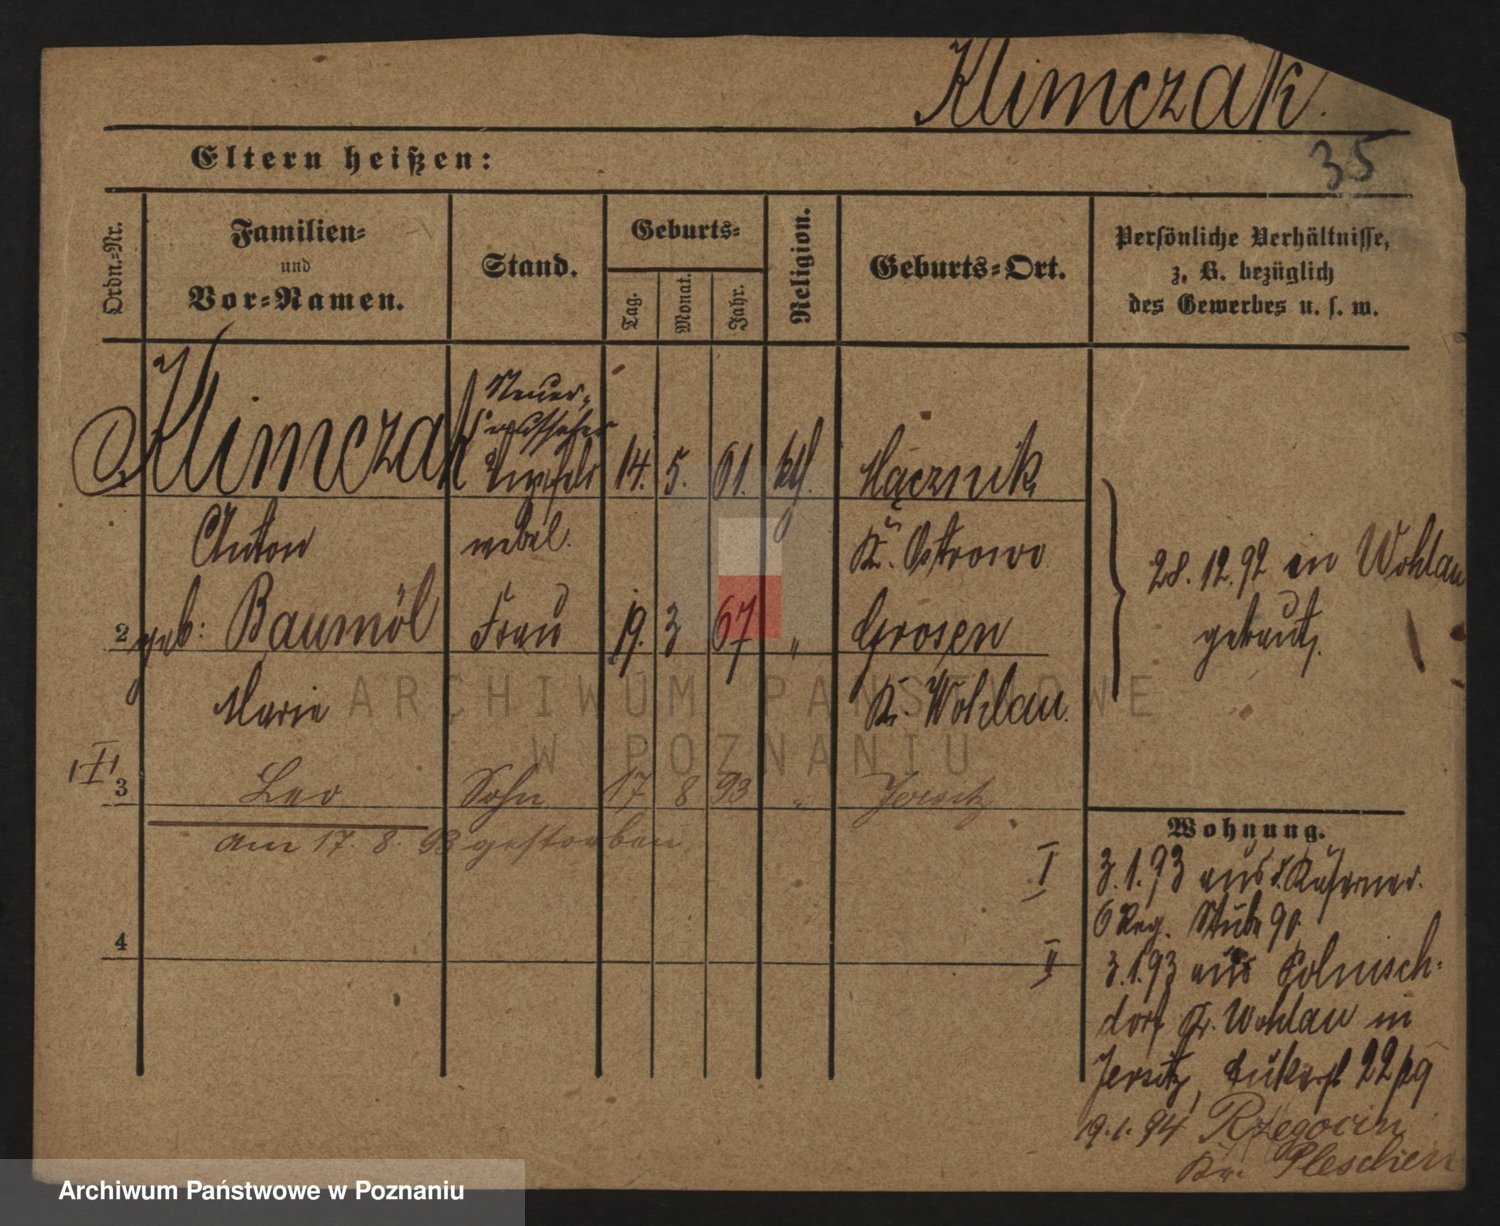 Klimczak.
35
Eltern heißen:
Ordn.-Nr.
Familien-
und
Vor-Namen.
Stand.
Geburts-
Tag.
Monat.
Jahr.
Religion.
Geburts-Ort.
Persönliche Verhältnisse,
z. B. bezüglich
des Gewerbes u. s. w.
Klimczak Steuer- 14. 5. 61. kth. Mącznik
Anton webel. Kr. Ostrowo
28. 12. 92 in Wohlau
getraut.
2 geb: Baumöl Frau 19. 3 67 " Grosen
Marie Kr. Wohlau.
3 Leo Sohn 17 8 93 " Jersitz
am 17. 8. 93 gestorben
4
Wohnung.
I 3.1.93 aus d. Kaserne
6 Reg. Stube 90.
II 3.1.93 aus Polnisch-
dorf Kr. Wohlau in
Jersitz, 22
19.1.94 Rzegocin
Kr. Pleschen
ARCHIWUM PAŃSTWOWE
W POZNANIU
Archiwum Państwowe w Poznaniu